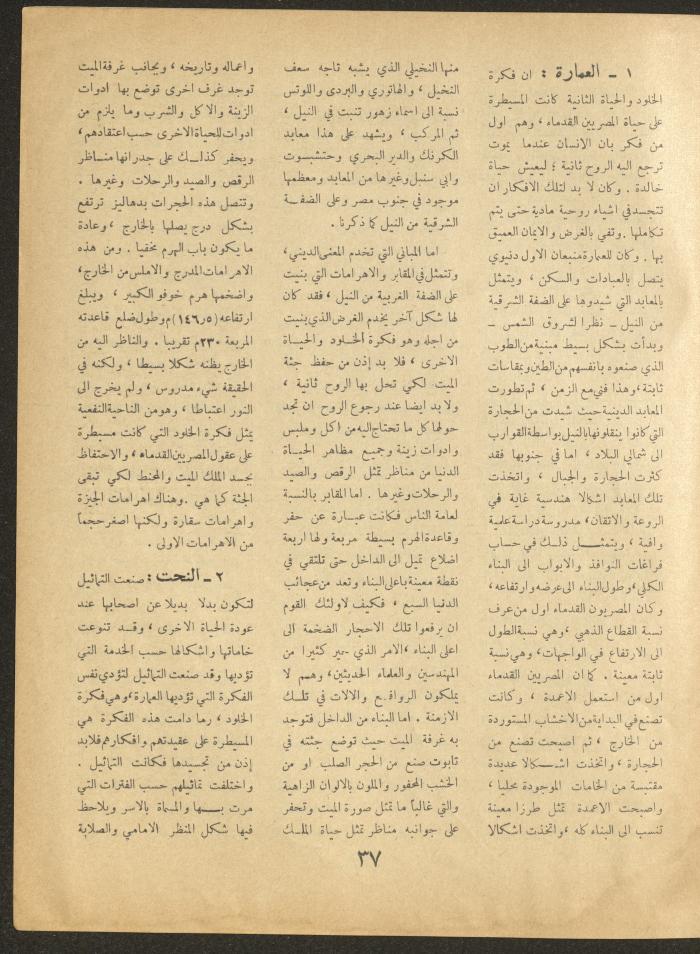 ١ ـ العمارة : ان فكرة
الخلود والحياة الثانية كانت المسيطرة
على حياة المصريين القدماء ، وهم اول
من فكر بان الانسان عندما يموت
ترجع اليه الروح ثانية ؛ ليعيش حياة
خالدة . وكان لا بد لتلك الافكار ان
تتجسد في اشياء روحية مادية حتى يتم
تكاملها . وتفي بالغرض والايمان العميق
بها . وكان للعمارة منبعان الاول دنيوي
يتصل بالعبادات والسكن ، ويتمثل
بالمعابد التي شيدوها على الضفة الشرقية
من النيل ـ نظرا لشروق الشمس ـ
وبدأت بشكل بسيط مبنية من الطوب
الذي صنعوه بانفسهم من الطين وبمقاسات
ثابتة ، وهذا فني مع الزمن ، ثم تطورت
المعابد الدينية حيث شيدت من الحجارة
التي كانوا ينقلونها بالنيل بواسطة القوارب
الى شمالي البلاد ، اما في جنوبها فقد
كثرت الحجارة والجبال ، واتخذت
تلك المعابد اشكالا هندسية غاية في
الروعة والاتقان ، مدروسة دراسة علمية
وافية ، ويتمثل ذلك في حساب
فراغات النوافذ والابواب الى البناء
الكلي ، وطول البناء الى عرضه وارتفاعه ،
وكان المصريون القدماء اول من عرف
نسبة القطاع الذهبي ، وهي نسبة الطول
الى الارتفاع في الواجهات ، وهي نسبة
ثابتة معينة . كما ان المصريين القدماء
اول من استعمل الاعمدة ، وكانت
تصنع في البداية من الاخشاب المستوردة
من الخارج ، ثم اصبحت تصنع من
الحجارة ، واتخذت اشكالا عديدة
مقتبسة من الخامات الموجودة محليا ،
واصبحت الاعمدة تمثل طرزا معينة
تنسب الى البناء كله ، واتخذت اشكالا
منها النخيلي الذي يشبه تاجه سعف
النخيل ، والهاتوري والبردى واللوتس
نسبة الى اسماء زهور تنبت في النيل ،
ثم المركب ، ويشهد على هذا معابد
الكرنك والدير البحري وحتشبسوت
وابي سنبل وغيرها من المعابد ومعظمها
موجود في جنوب مصر وعلى الضفة
الشرقية من النيل كما ذكرنا .
اما المباني التي تخدم المعنى الديني ،
وتتمثل في المقابر والاهرامات التي بنيت
على الضفة الغربية من النيل ، فقد كان
لها شكل آخر يخدم الغرض الذي بنيت
من اجله وهو فكرة الخلود والحياة
الاخرى ، فلا بد إذن من حفظ جثة
الميت لكي تحل بها الروح ثانية ،
ولا بد ايضا عند رجوع الروح ان تجد
حولها كل ما تحتاج اليه من اكل وملبس
وادوات زينة وجميع مظاهر الحياة
الدنيا من مناظر تمثل الرقص والصيد
والرحلات وغيرها . اما المقابر بالنسبة
لعامة الناس فكانت عبارة عن حفر
وقاعدة الهرم بسيطة مربعة ولها اربعة
اضلاع تميل الى الداخل حتى تلتقي في
نقطة معينة باعلى البناء وتعد من عجائب
الدنيا السبع ، فكيف لاولئك القوم
ان يرفعوا تلك الاحجار الضخمة الى
اعلى البناء ، الامر الذي حير كثيرا من
المهندسين والعلماء الحديثين ، وهم لا
يملكون الروافع والالات في تلك
الازمنة . اما البناء من الداخل فتوجد
به غرفة الميت حيث توضع جثته في
تابوت صنع من الحجر الصلب او من
الخشب المحفور والملون بالالوان الزاهية
والتي غالباً ما تمثل صورة الميت وتحفر
على جوانبه مناظر تمثل حياة الملك
واعماله وتاريخه ، وبجانب غرفة الميت
توجد غرف اخرى توضع بها ادوات
الزينة والاكل والشرب وما يلزم من
ادوات للحياة الاخرى حسب اعتقادهم ،
ويحفر كذلك على جدرانها مناظر
الرقص والصيد والرحلات وغيرها .
وتتصل هذه الحجرات بدهاليز ترتفع
بشكل درج يصلها بالخارج ، وعادة
ما يكون باب الهرم مخفيا . ومن هذه
الاهرامات المدرج والاملس من الخارج ،
واضخمها هرم خوفو الكبير ، ويبلغ
ارتفاعه (١٤٦٫٥) م وطول ضلع قاعدته
المربعة ٢٣٠م تقريبا . والناظر اليه من
الخارج يظنه شكلا بسيطا ، ولكنه في
الحقيقة شيء مدروس ، ولم يخرج الى
النور اعتباطا ، وهو من الناحية النفعية
يمثل فكرة الخلود التي كانت مسيطرة
على عقول المصريين القدماء ، والاحتفاظ
بجسد الملك الميت والمحنط لكي تبقى
الجثة كما هي . وهناك اهرامات الجيزة
واهرامات سقارة ولكنها اصغر حجماً
من الاهرامات الاولى .
٢ ـ النحت : صنعت التماثيل
لتكون بدلا بديلا عن اصحابها عند
عودة الحياة الاخرى ، وقد تنوعت
خاماتها واشكالها حسب الخدمة التي
تؤديها وقد صنعت التماثيل لتؤدي نفس
الفكرة التي تؤديها العمارة ، وهي فكرة
الخلود ، رما دامت هذه الفكرة هي
المسيطرة على عقيدتهم وافكارهم فلا بد
إذن من تجسيدها فكانت التماثيل .
واختلفت تماثيلهم حسب الفترات التي
مرت بها والمسماة بالاسر ويلاحظ
فيها شكل المنظر الامامي والصلابة
٣٧